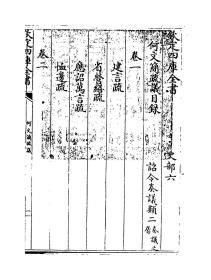 欽定四庫全書　史部六
何文簡疏議目錄　詔令奏議類二奏議之屬
卷一
建言疏
省營繕疏
應詔萬言疏
恤邊疏
卷二
欽定四庫全書　何文簡疏議　一